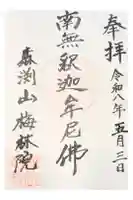 奉拝 令和八年五月三日
南無釈迦牟尼佛
森渕山 梅林院